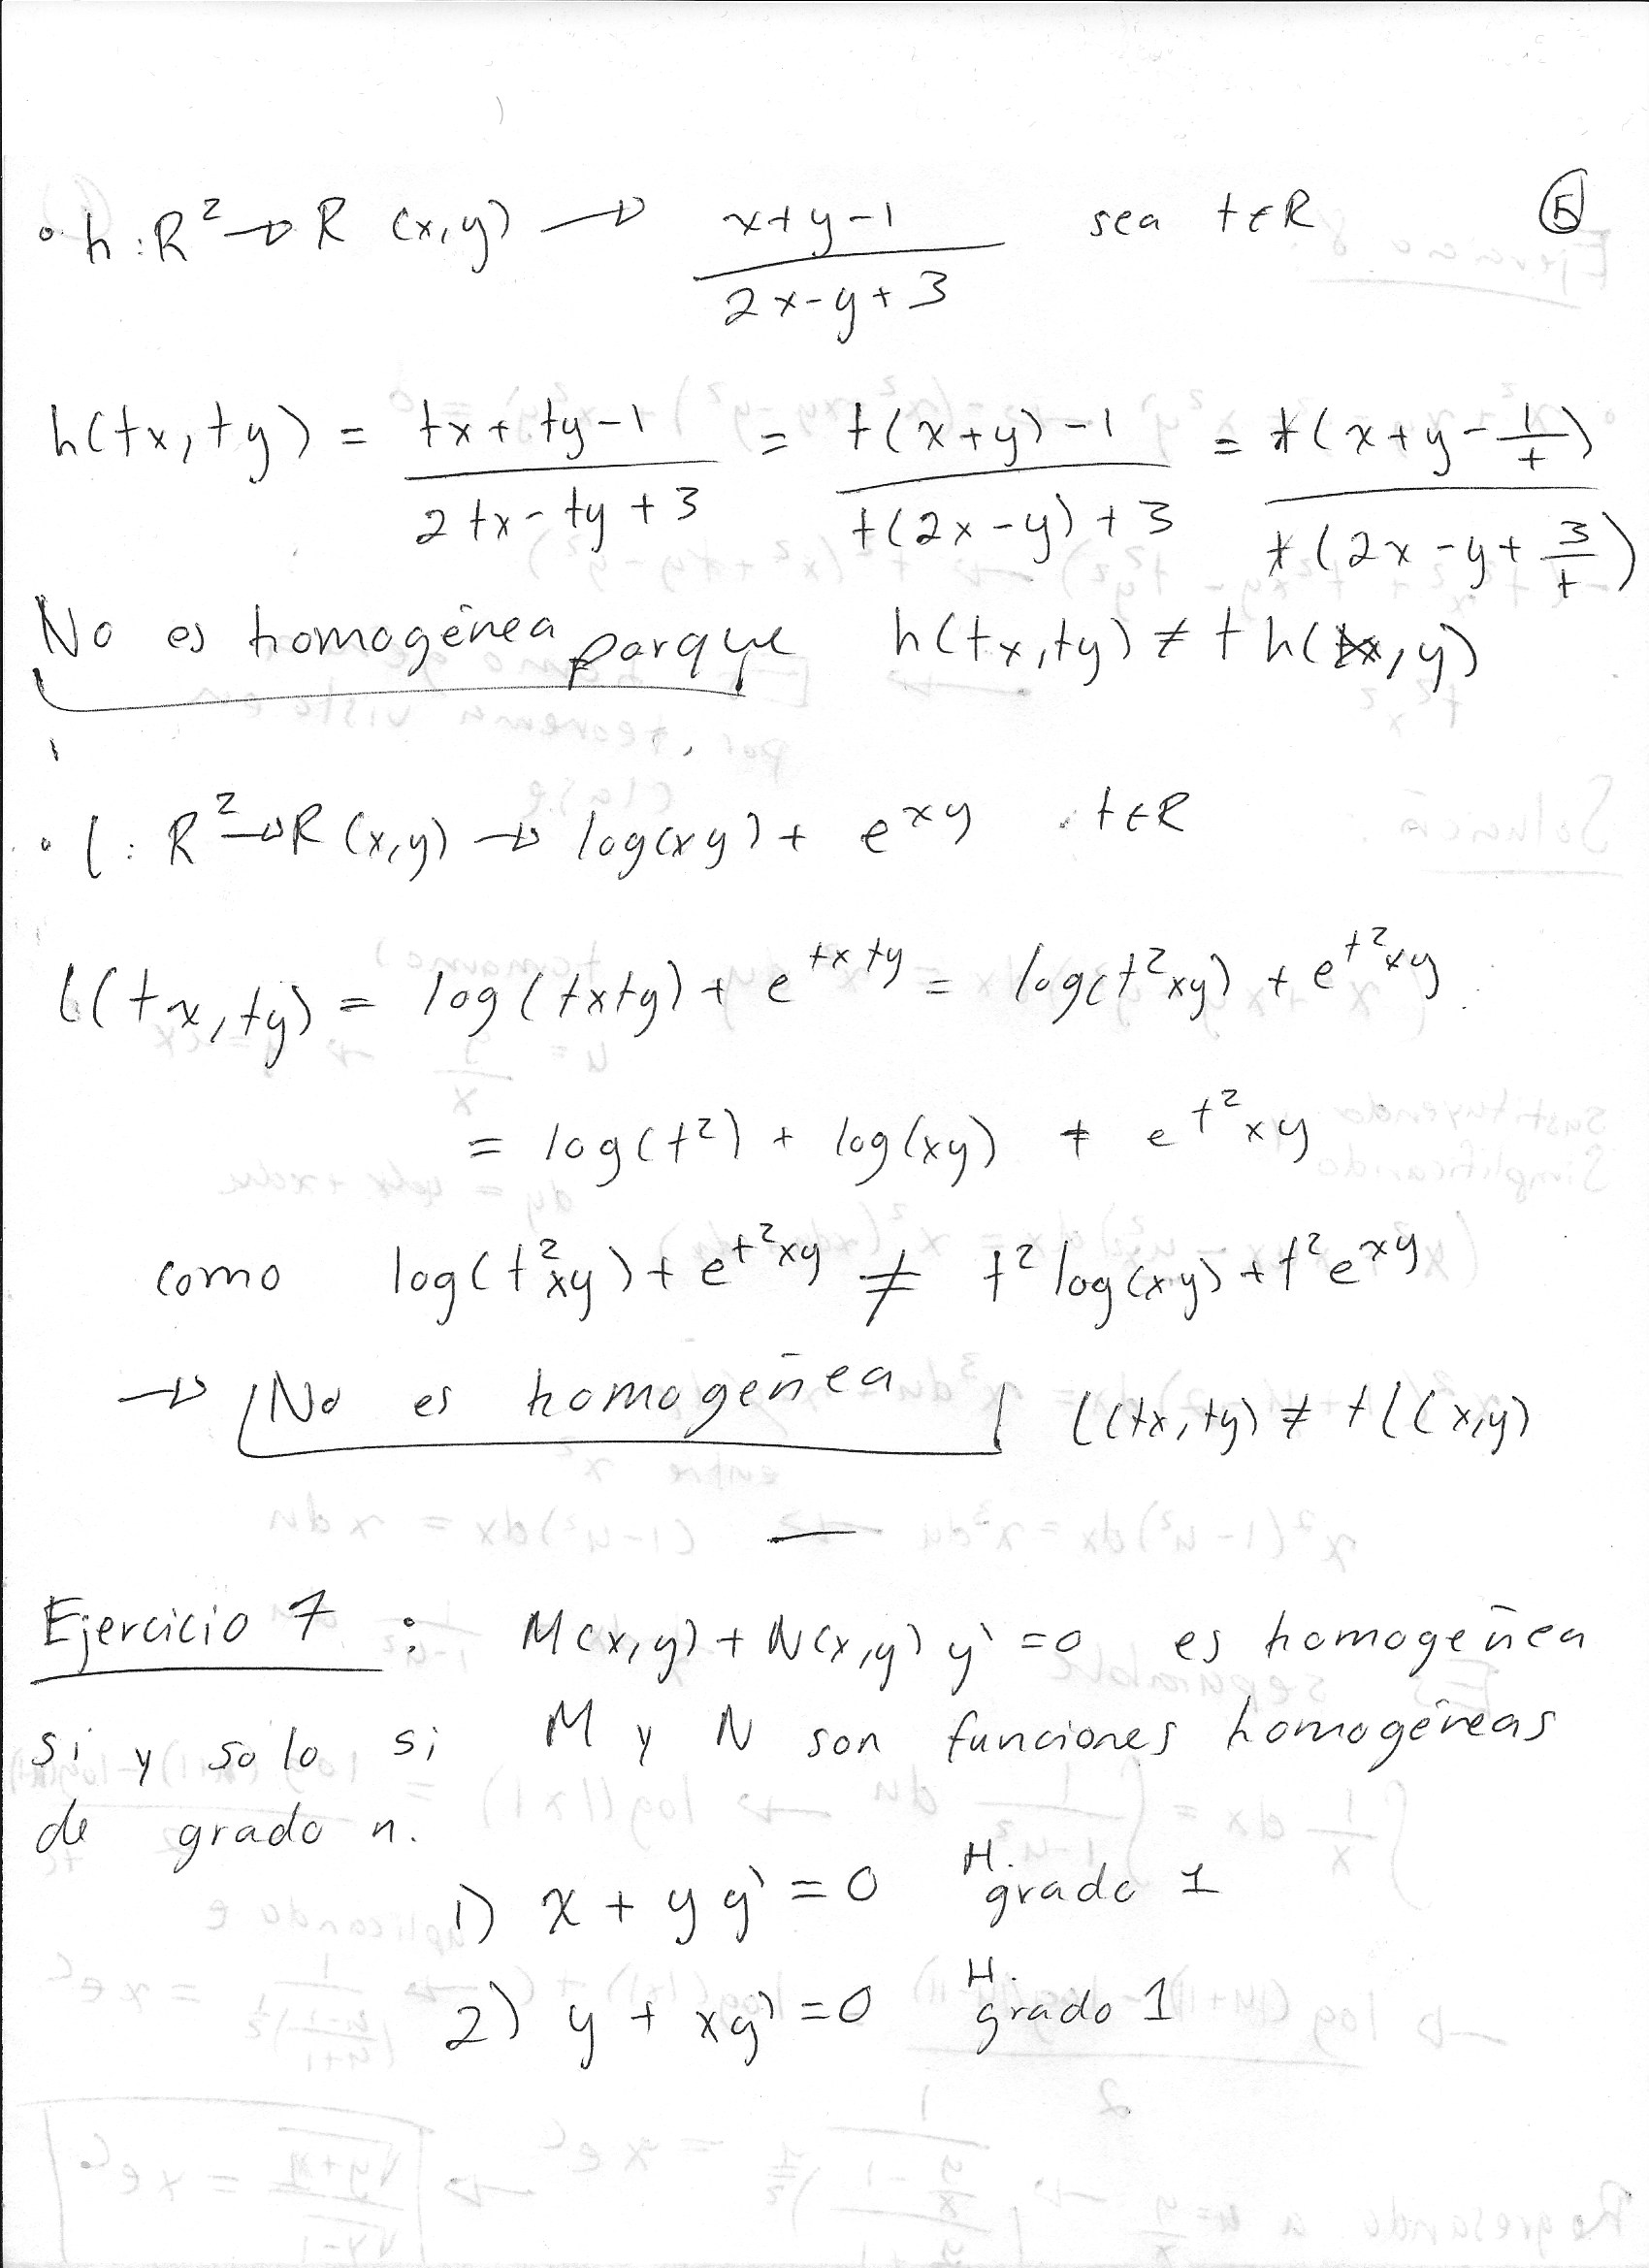 • h : R² → R (x,y) → (x+y-1)/(2x-y+3) sea t∈R ⑤
h(tx,ty) = (tx+ty-1)/(2tx-ty+3) = (t(x+y)-1)/(t(2x-y)+3) = t(x+y-1/t)/t(2x-y+3/t)
No es homogénea porque h(tx,ty) ≠ t h(x,y)
• l : R² → R (x,y) → log(xy) + e^{xy} t∈R
l(tx,ty) = log(txty) + e^{txty} = log(t²xy) + e^{t²xy}
= log(t²) + log(xy) + e^{t²xy}
como log(t²xy) + e^{t²xy} ≠ t² log(xy) + t² e^{xy}
→ No es homogénea l(tx,ty) ≠ t l(x,y)
Ejercicio 7 : M(x,y) + N(x,y) y' = 0 es homogénea
si y solo si M y N son funciones homogéneas
de grado n.
1) x + y y' = 0 H. grado 1
2) y + x y' = 0 H. grado 1